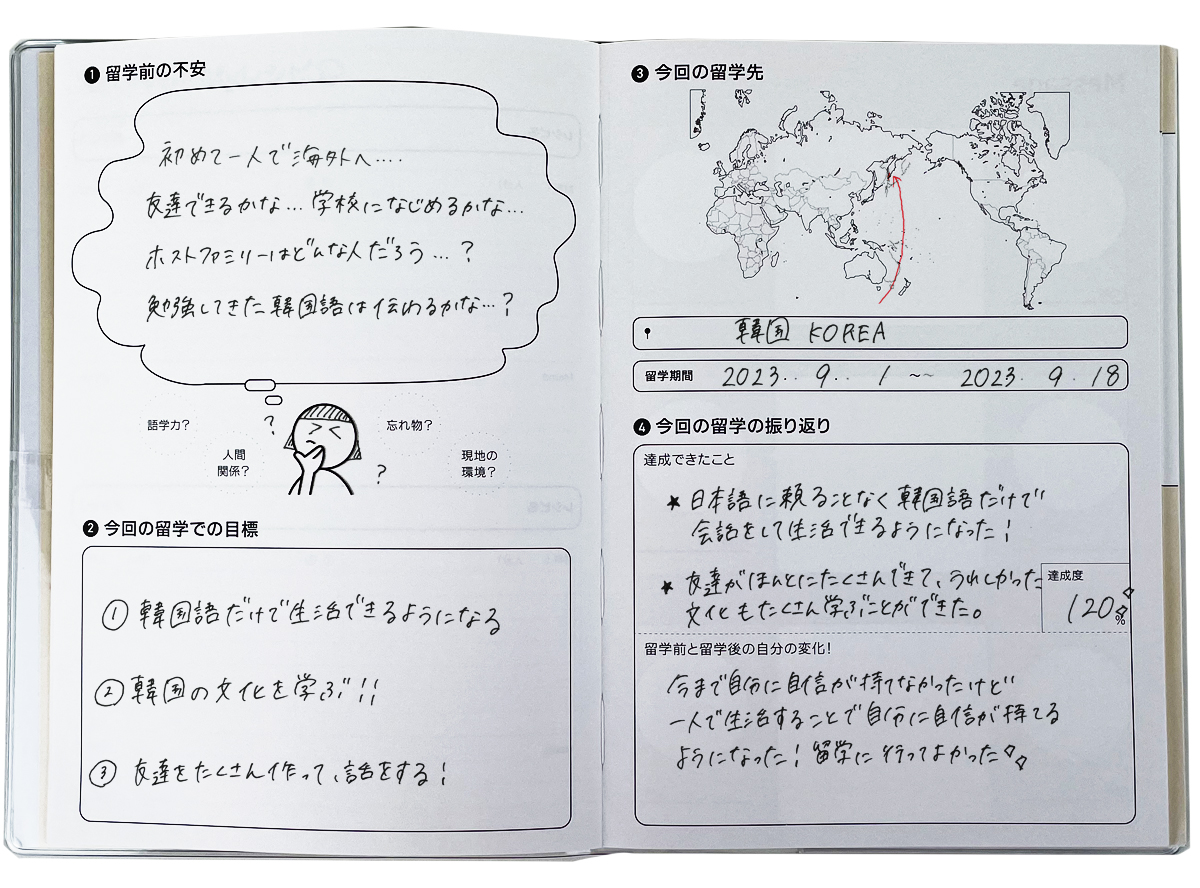 ❶ 留学前の不安
初めて一人で海外へ....
友達できるかな...学校になじめるかな...
ホストファミリーはどんな人だろう...?
勉強してきた韓国語は伝わるかな...?
語学力?
忘れ物?
人間
関係?
現地の
環境?
?
?
❷ 今回の留学での目標
① 韓国語だけで生活できるようになる
② 韓国の文化を学ぶ!!
③ 友達をたくさん作って、話をする!
❸ 今回の留学先
韓国 KOREA
留学期間 2023.. 9.. 1 ~~ 2023. 9. 18
❹ 今回の留学の振り返り
達成できたこと
★ 日本語に頼ることなく韓国語だけで
会話をして生活できるようになった!
★ 友達がほんとにたくさんできて、うれしかった
文化もたくさん学ぶことができた。
達成度
120%
留学前と留学後の自分の変化!
今まで自分に自信が持てなかったけど
一人で生活することで自分に自信が持てる
ようになった!留学に行ってよかった